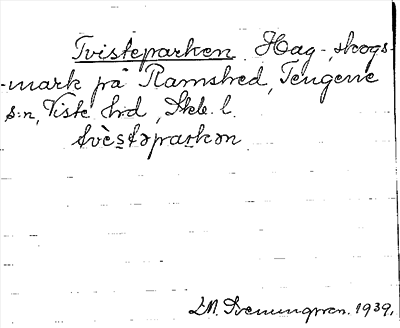 Tvisteparken Hag-, skogs-
-mark på Ramshed, Tengene
s:n, Viste hrd, Skb. l.
tvès̠təparkən
D.N. Svenungsson. 1939.